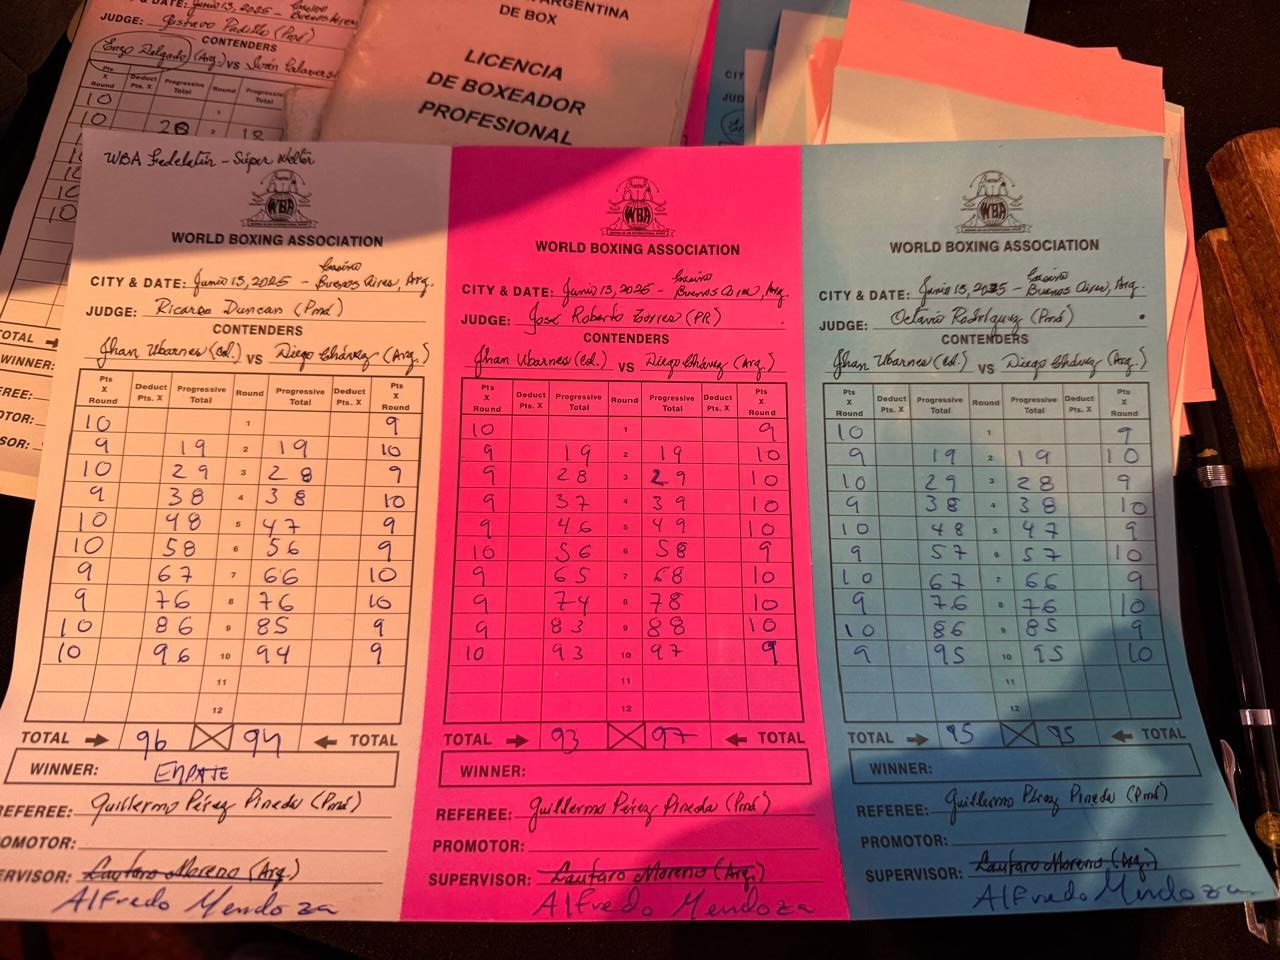 & DATE: Junio 13, 2025 - Casino Buenos Aires
JUDGE: Gustavo Padilla (Pmá)
CONTENDERS
Enzo Delgado (Arg.) VS Iván
Pts X Round Deduct Pts. X Progressive Total Round Progressive Total
10 1
10 20 2 18
10
TOTAL
WINNER:
ARGENTINA
DE BOX
LICENCIA
DE BOXEADOR
PROFESIONAL
CIT
JUD
WBA Fedelatin - Súper Welter
WBA
WORLD BOXING ASSOCIATION
CITY & DATE: Junio 13, 2025 - Casino Buenos Aires, Arg.
JUDGE: Ricardo Duncan (Pmá)
CONTENDERS
Jhan Ubarnes (Col.) VS Diego Chávez (Arg.)
Pts X Round Deduct Pts. X Progressive Total Round Progressive Total Deduct Pts. X Pts X Round
10 1 9
9 19 2 19 10
10 29 3 28 9
9 38 4 38 10
10 48 5 47 9
10 58 6 56 9
9 67 7 66 10
9 76 8 76 10
10 86 9 85 9
10 96 10 94 9
11
12
TOTAL 96 94 TOTAL
WINNER: EMPATE
REFEREE: Guillermo Pérez Pineda (Pmá)
OMOTOR:
ERVISOR: Lautaro Moreno (Arg.)
Alfredo Mendoza
WBA
WORLD BOXING ASSOCIATION
CITY & DATE: Junio 13, 2025 - Casino Buenos Aires, Arg.
JUDGE: José Roberto Torres (PR)
CONTENDERS
Jhan Ubarnes (Col.) VS Diego Chávez (Arg.)
Pts X Round Deduct Pts. X Progressive Total Round Progressive Total Deduct Pts. X Pts X Round
10 1 9
9 19 2 19 10
9 28 3 29 10
9 37 4 39 10
9 46 5 49 10
10 56 6 58 9
9 65 7 68 10
9 74 8 78 10
9 83 9 88 10
10 93 10 97 9
11
12
TOTAL 93 97 TOTAL
WINNER:
REFEREE: Guillermo Pérez Pineda (Pmá)
PROMOTOR:
SUPERVISOR: Lautaro Moreno (Arg.)
Alfredo Mendoza
WBA
WORLD BOXING ASSOCIATION
CITY & DATE: Junio 13, 2025 - Casino Buenos Aires, Arg.
JUDGE: Octavio Rodríguez (Pmá)
CONTENDERS
Jhan Ubarnes (Col.) VS Diego Chávez (Arg.)
Pts X Round Deduct Pts. X Progressive Total Round Progressive Total Deduct Pts. X Pts X Round
10 1 9
9 19 2 19 10
10 29 3 28 9
9 38 4 38 10
10 48 5 47 9
9 57 6 57 10
10 67 7 66 9
9 76 8 76 10
10 86 9 85 9
9 95 10 95 10
11
12
TOTAL 95 95 TOTAL
WINNER:
REFEREE: Guillermo Pérez Pineda (Pmá)
PROMOTOR:
SUPERVISOR: Lautaro Moreno (Arg.)
Alfredo Mendoza